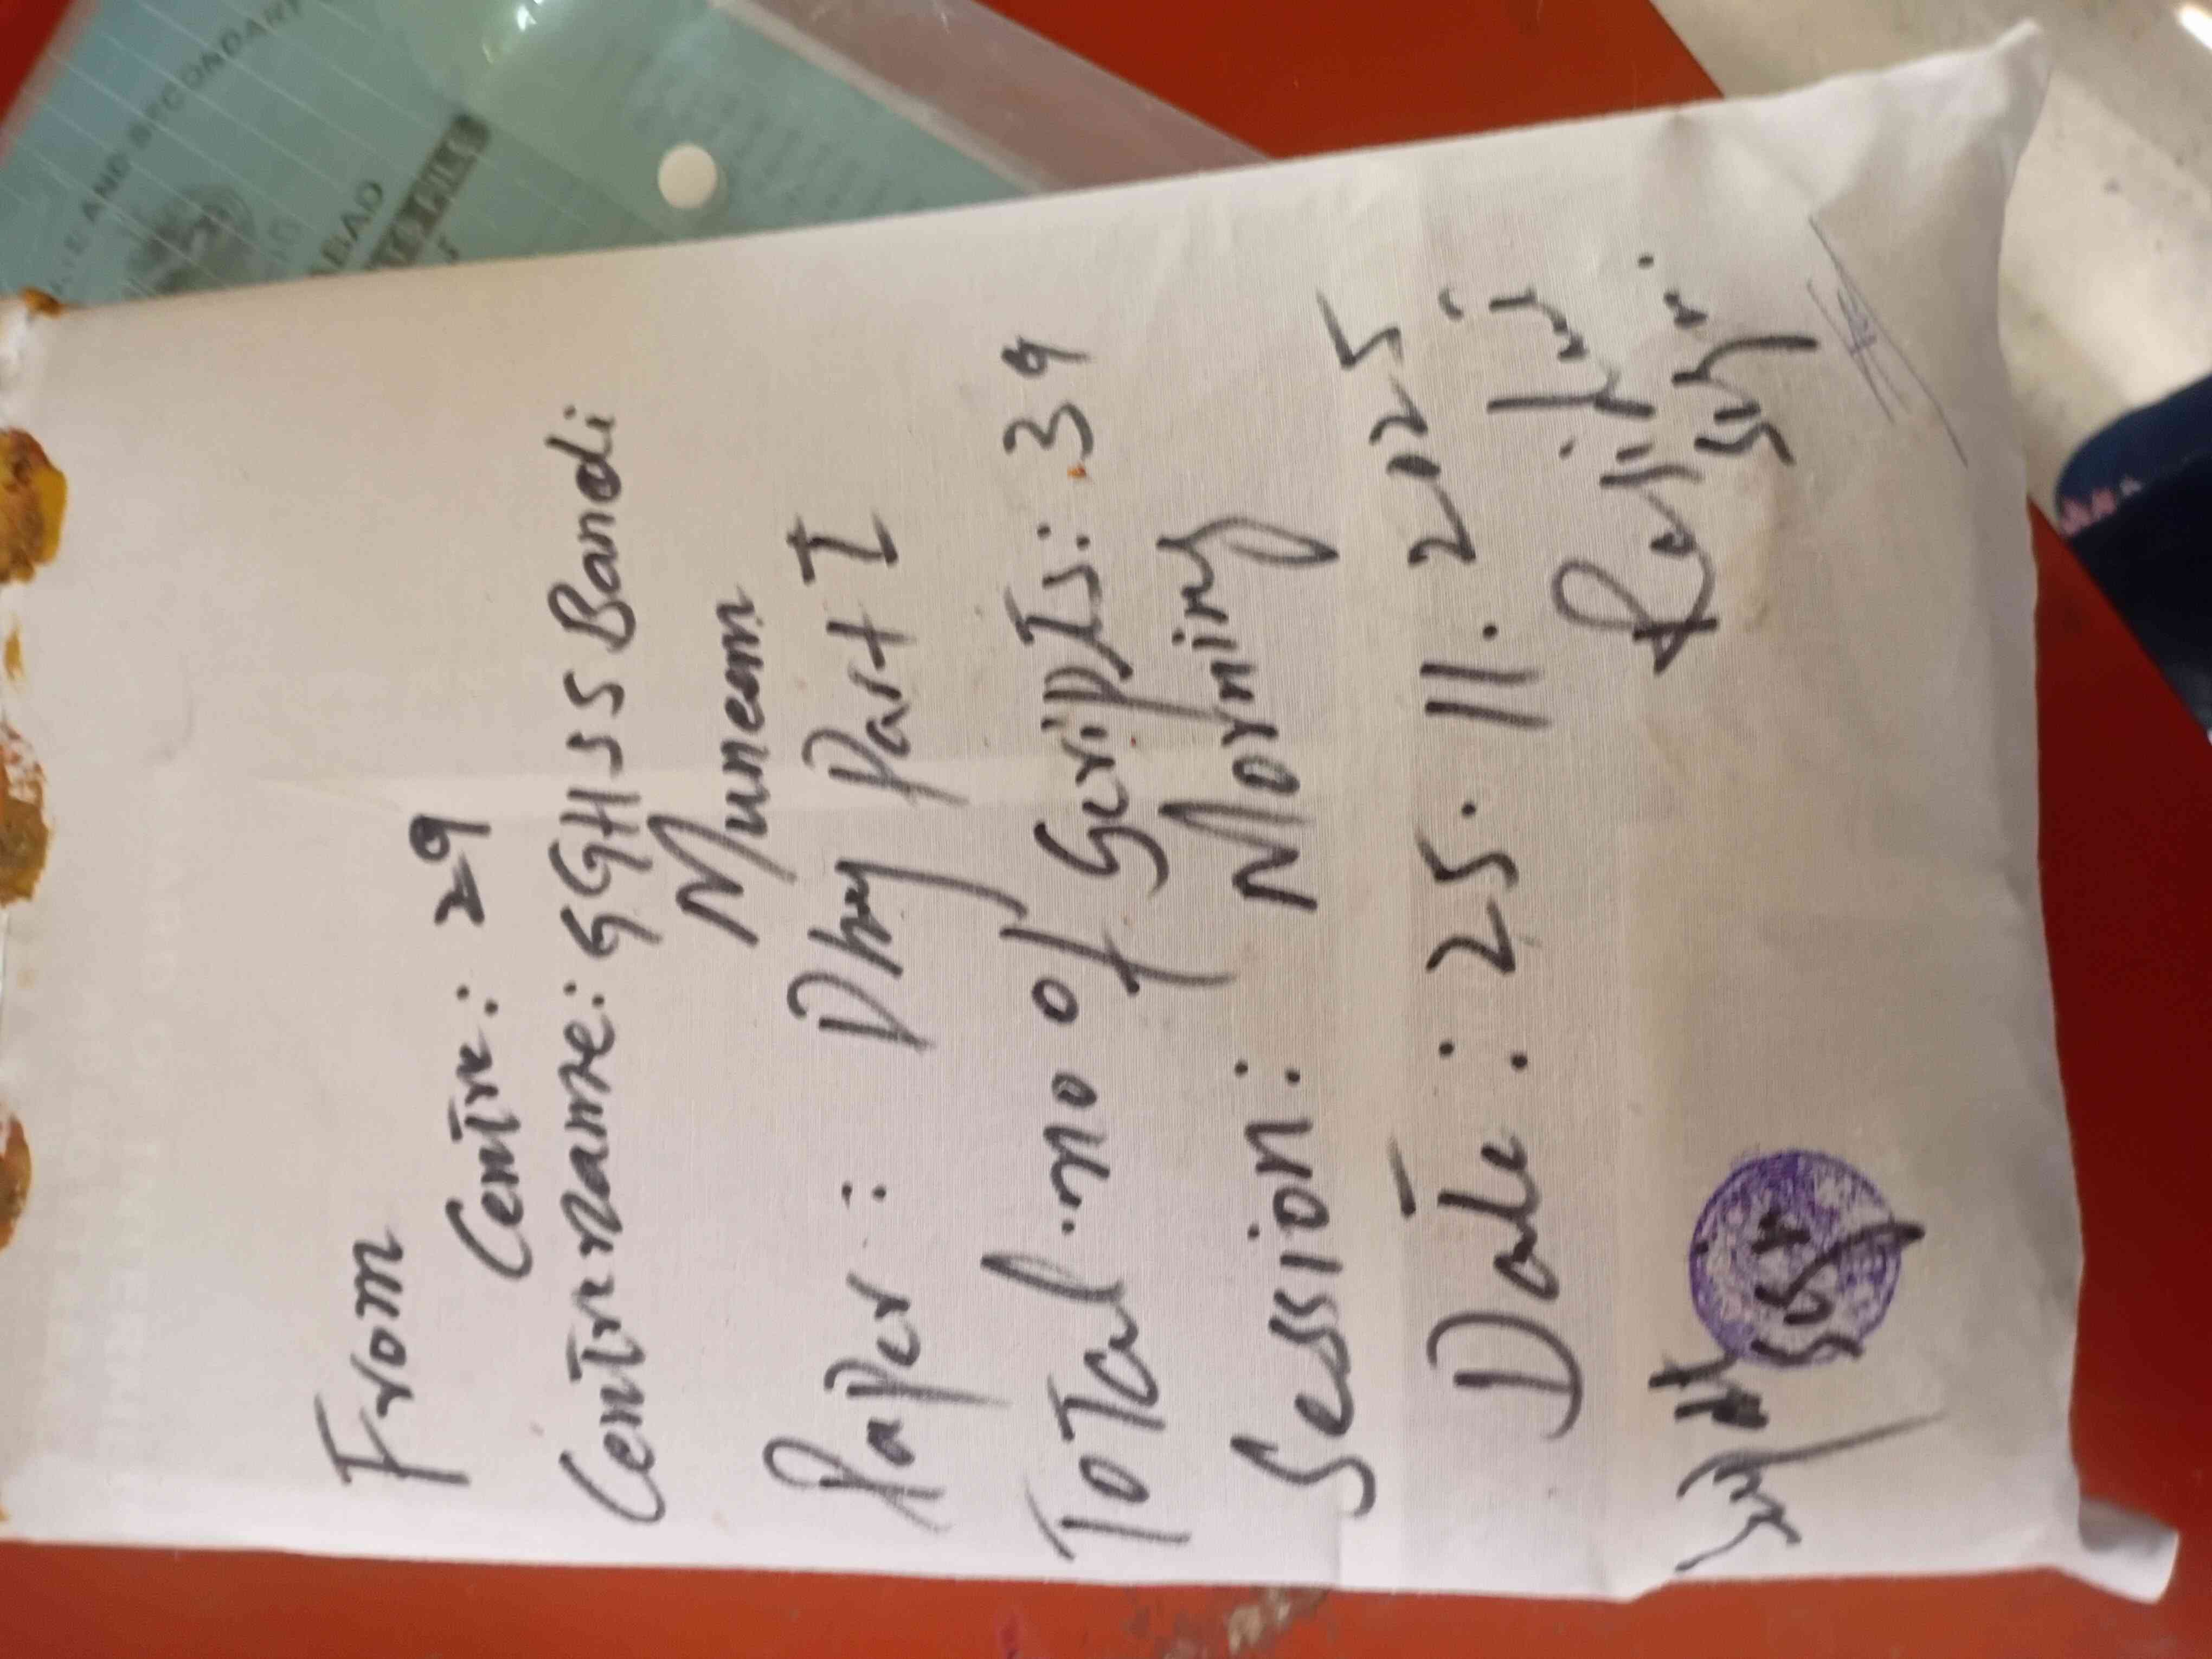 From
Centre: 29
Centre name: GGHSS Bandi
Muneem
Paper: Phy Part I
Total no of Scripts: 39
Session: Morning
Date: 25.11.2025
AND SECONDARY
BAD